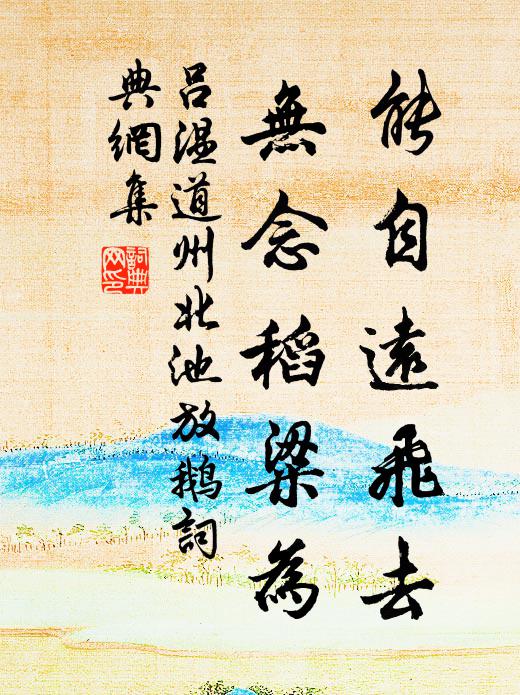 能自遠飛去
無念稻粱為
呂溫道州北池放鵝詞
典網集
詞典網印